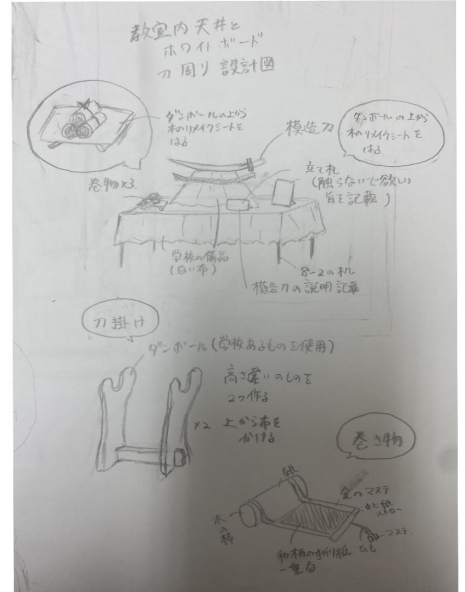 教室内天井と
ホワイトボード
刀周り設計図
ダンボールの上から
木のリメイクシートを
はる
模造刀
ダンボールの上から
木のリメイクシートを
はる
巻物×3
立て札
(触らないで欲しい
旨を記載)
学校の備品
(白い布)
8-2の机
模造刀の説明記載
刀掛け
ダンボール(学校あるものを使用)
高さ違いのものを
2つ作る
×2 上から布を
かける
巻き物
紙
金のマステ
木の棒
マステ
ひも
和柄の折り紙